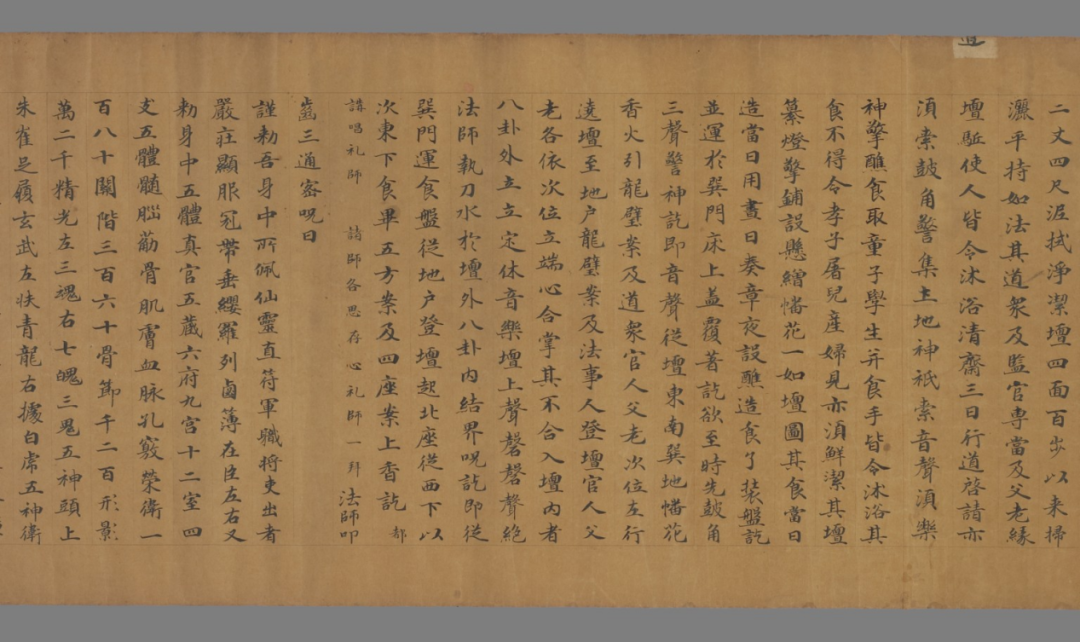 二丈四尺泥拭淨潔壇四面百步以来掃
灑平持如法其道衆及監官専當及父老縁
壇駈使人皆令沐浴清齋三日行道啓請亦
湏素鼓角警集土地神祇素音聲湏樂
神擎醮食取童子學生并食手皆令沐浴其
食不得令孝子屠兒産婦見亦湏鮮潔其壇
纂燈擎鋪設懸繒幡花一如壇圖其食當日
造當日用晝日奏章夜設醮造食了装盤訖
並運於巽門床上盖覆著訖欲至時先鼓角
三聲警神訖即音聲從壇東南巽地幡花
香火引龍璧案及道衆官人父老次位左行
遶壇至地户龍璧案及法事人登壇官人父
老各依次位立端心合掌其不合入壇内者
八卦外立立定休音樂壇上聲磬磬聲絶
法師執刀水於壇外八卦内結界呪訖即従
巽門運食盤従地户登壇起北座従西下以
次東下食畢五方案及四座案上香訖 都
講唱礼師 請師各思存心礼師一拜 法師叩
齒三通密呪曰
謹勑吾身中所佩仙靈直符軍職将吏出者
嚴庄顯服冠帶垂纓羅列鹵薄在臣左右又
勑身中五體真官五藏六府九宫十二室四
支五體髓腦筋骨肌膚血脉孔竅榮衛一
百八十關階三百六十骨節千二百形影
萬二千精光左三魂右七魄三㒵五神頭上
朱雀足履玄武左扶青龍右據白虎五神衛